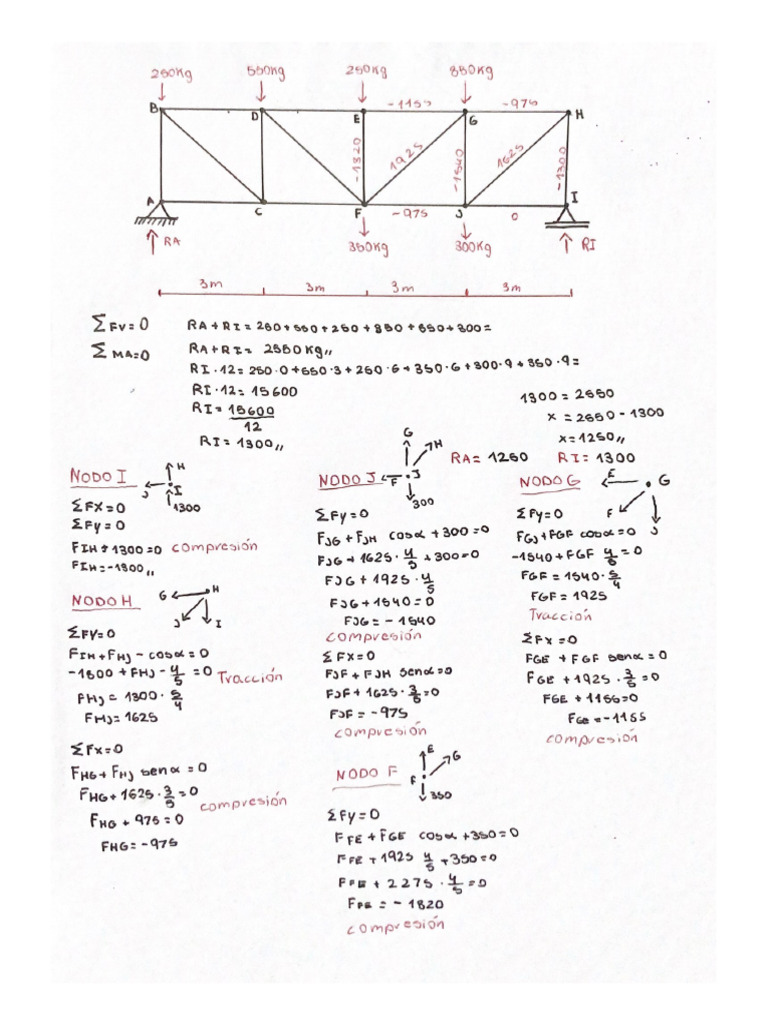 250Kg 550Kg 250Kg 850Kg
B D E -1155 G -975 H
-1820 1925 -1540 1625 -1300
A C F -975 J 0 I
RA 350Kg 300Kg RI
3m 3m 3m 3m
ΣFV=0 RA+RI=250+550+250+850+650+300=
ΣMA=0 RA+RI= 2550Kg,,
RI·12=250·0+550·3+250·6+350·6+300·9+850·9=
RI·12=15600
RI=15600
12
RI=1300,,
1300=2550
x=2550-1300
x=1250,,
RA=1250 RI=1300
NODO I
H
J I
1300
ΣFX=0
ΣFy=0
FIH+1300=0 compresión
FIH=-1300,,
NODO H
G H
J I
ΣFY=0
FIH+FHJ-cosα=0
-1300+FHJ-4/5=0 Tracción
FHJ=1300·5/4
FHJ=1625
ΣFX=0
FHG+FHJ senα=0
FHG+1625·3/5=0
compresión
FHG+975=0
FHG=-975
NODO J
G
H
F J
300
ΣFy=0
FJG+FJH cosα+300=0
FJG+1625·4/5+300=0
FJG+1925·4/5
FJG+1540=0
FJG=-1540
compresión
ΣFX=0
FJF+FJH senα=0
FJF+1625·3/5=0
FJF=-975
compresión
NODO F
E
G
F
350
ΣFy=0
FFE+FGE cosα+350=0
FFE+1925 4/5+350=0
FFE+2275·4/5=0
FFE=-1820
compresión
NODO G
E G
F
J
ΣFy=0
FGJ+FGF cosα=0
-1540+FGF 4/5=0
FGF=1540·5/4
FGF=1925
Tracción
ΣFx=0
FGE+FGF senα=0
FGE+1925·3/5=0
FGE+1155=0
FGE=-1155
compresión